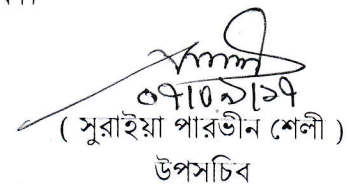 ০৭/০৯/১৭
( সুরাইয়া পারভীন শেলী )
উপসচিব